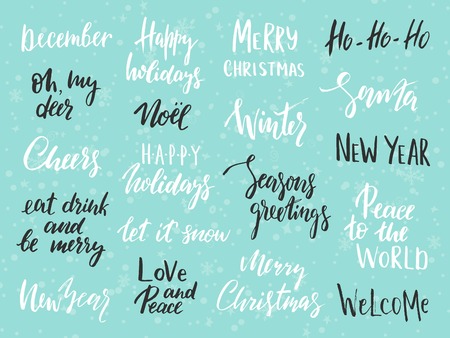 December
Happy
holidays
MERRY
CHRISTMAS
Ho-Ho-Ho
Oh, my
deer
Noël
Winter
Santa
Cheers
HAPPY
holidays
Seasons
greetings
NEW YEAR
eat drink
and
be merry
let it snow
Peace
to the
WORLD
New Year
Love
and
Peace
Merry
Christmas
WeLcoMe